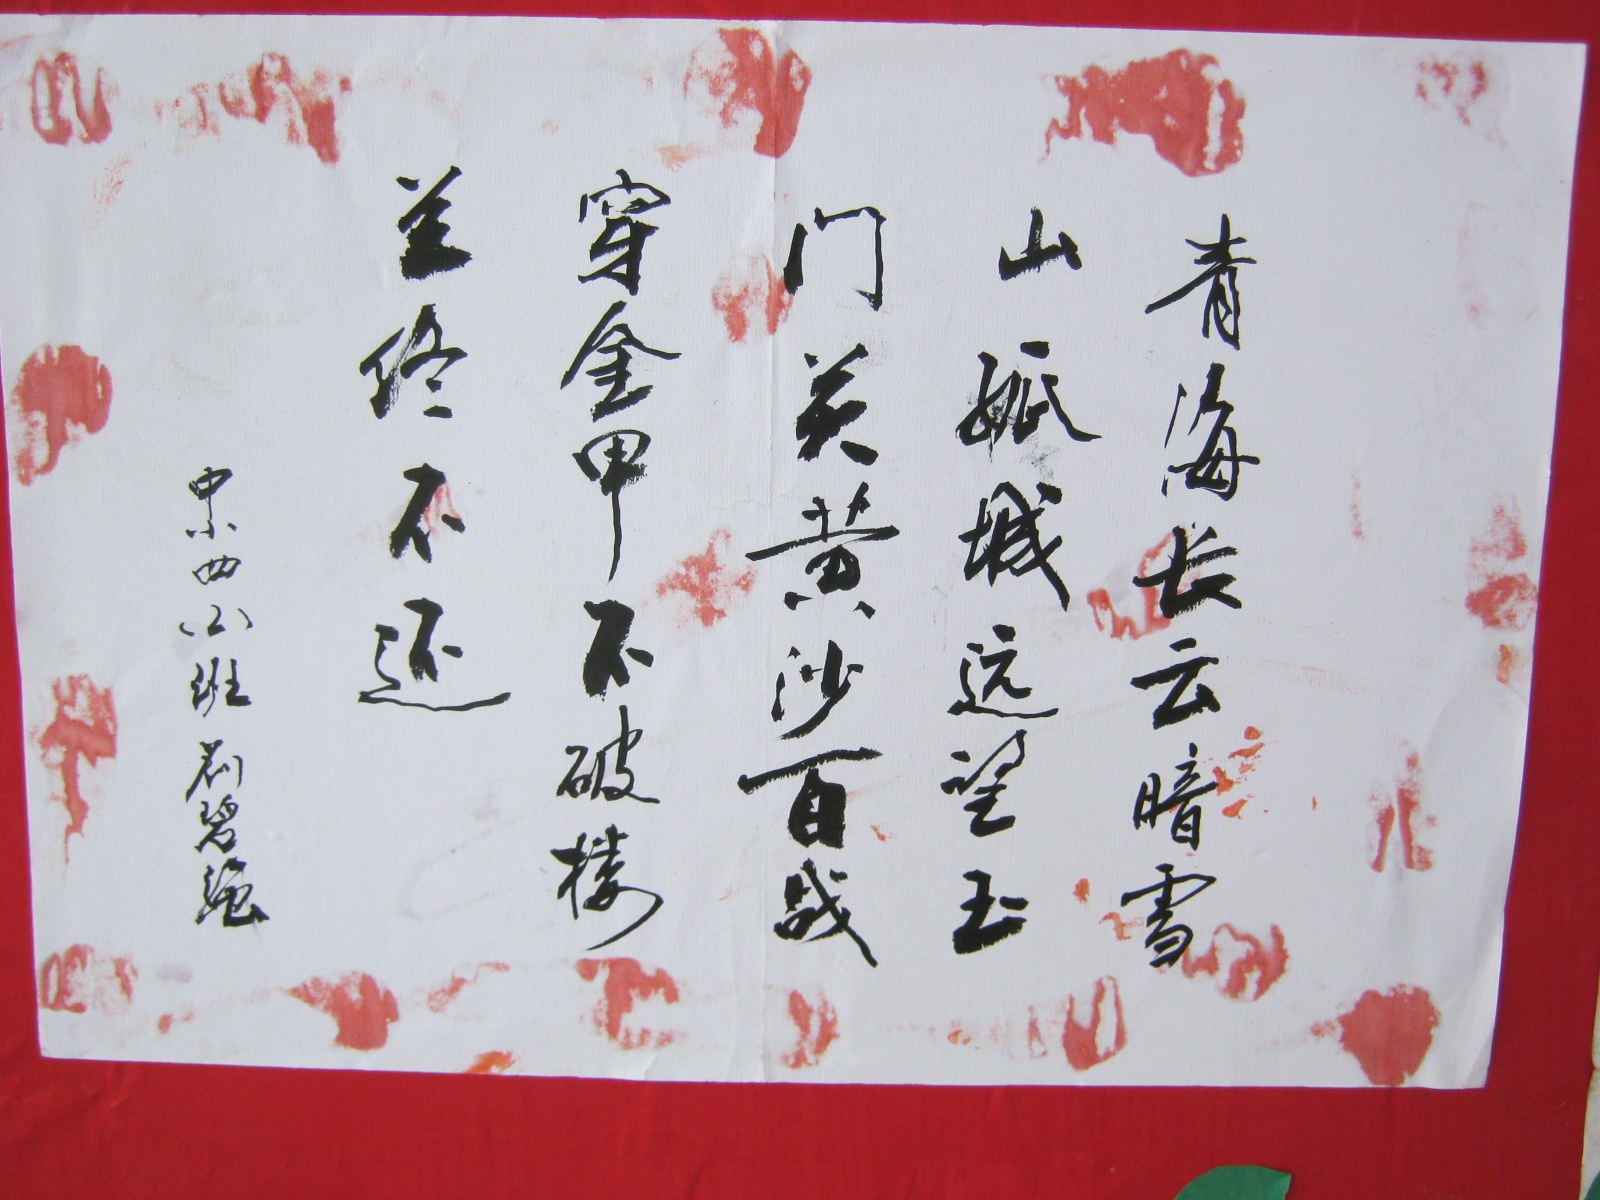 青海长云暗雪
山孤城远望玉
门关黄沙百战
穿金甲不破楼
兰终不还
中小四班 刘碧